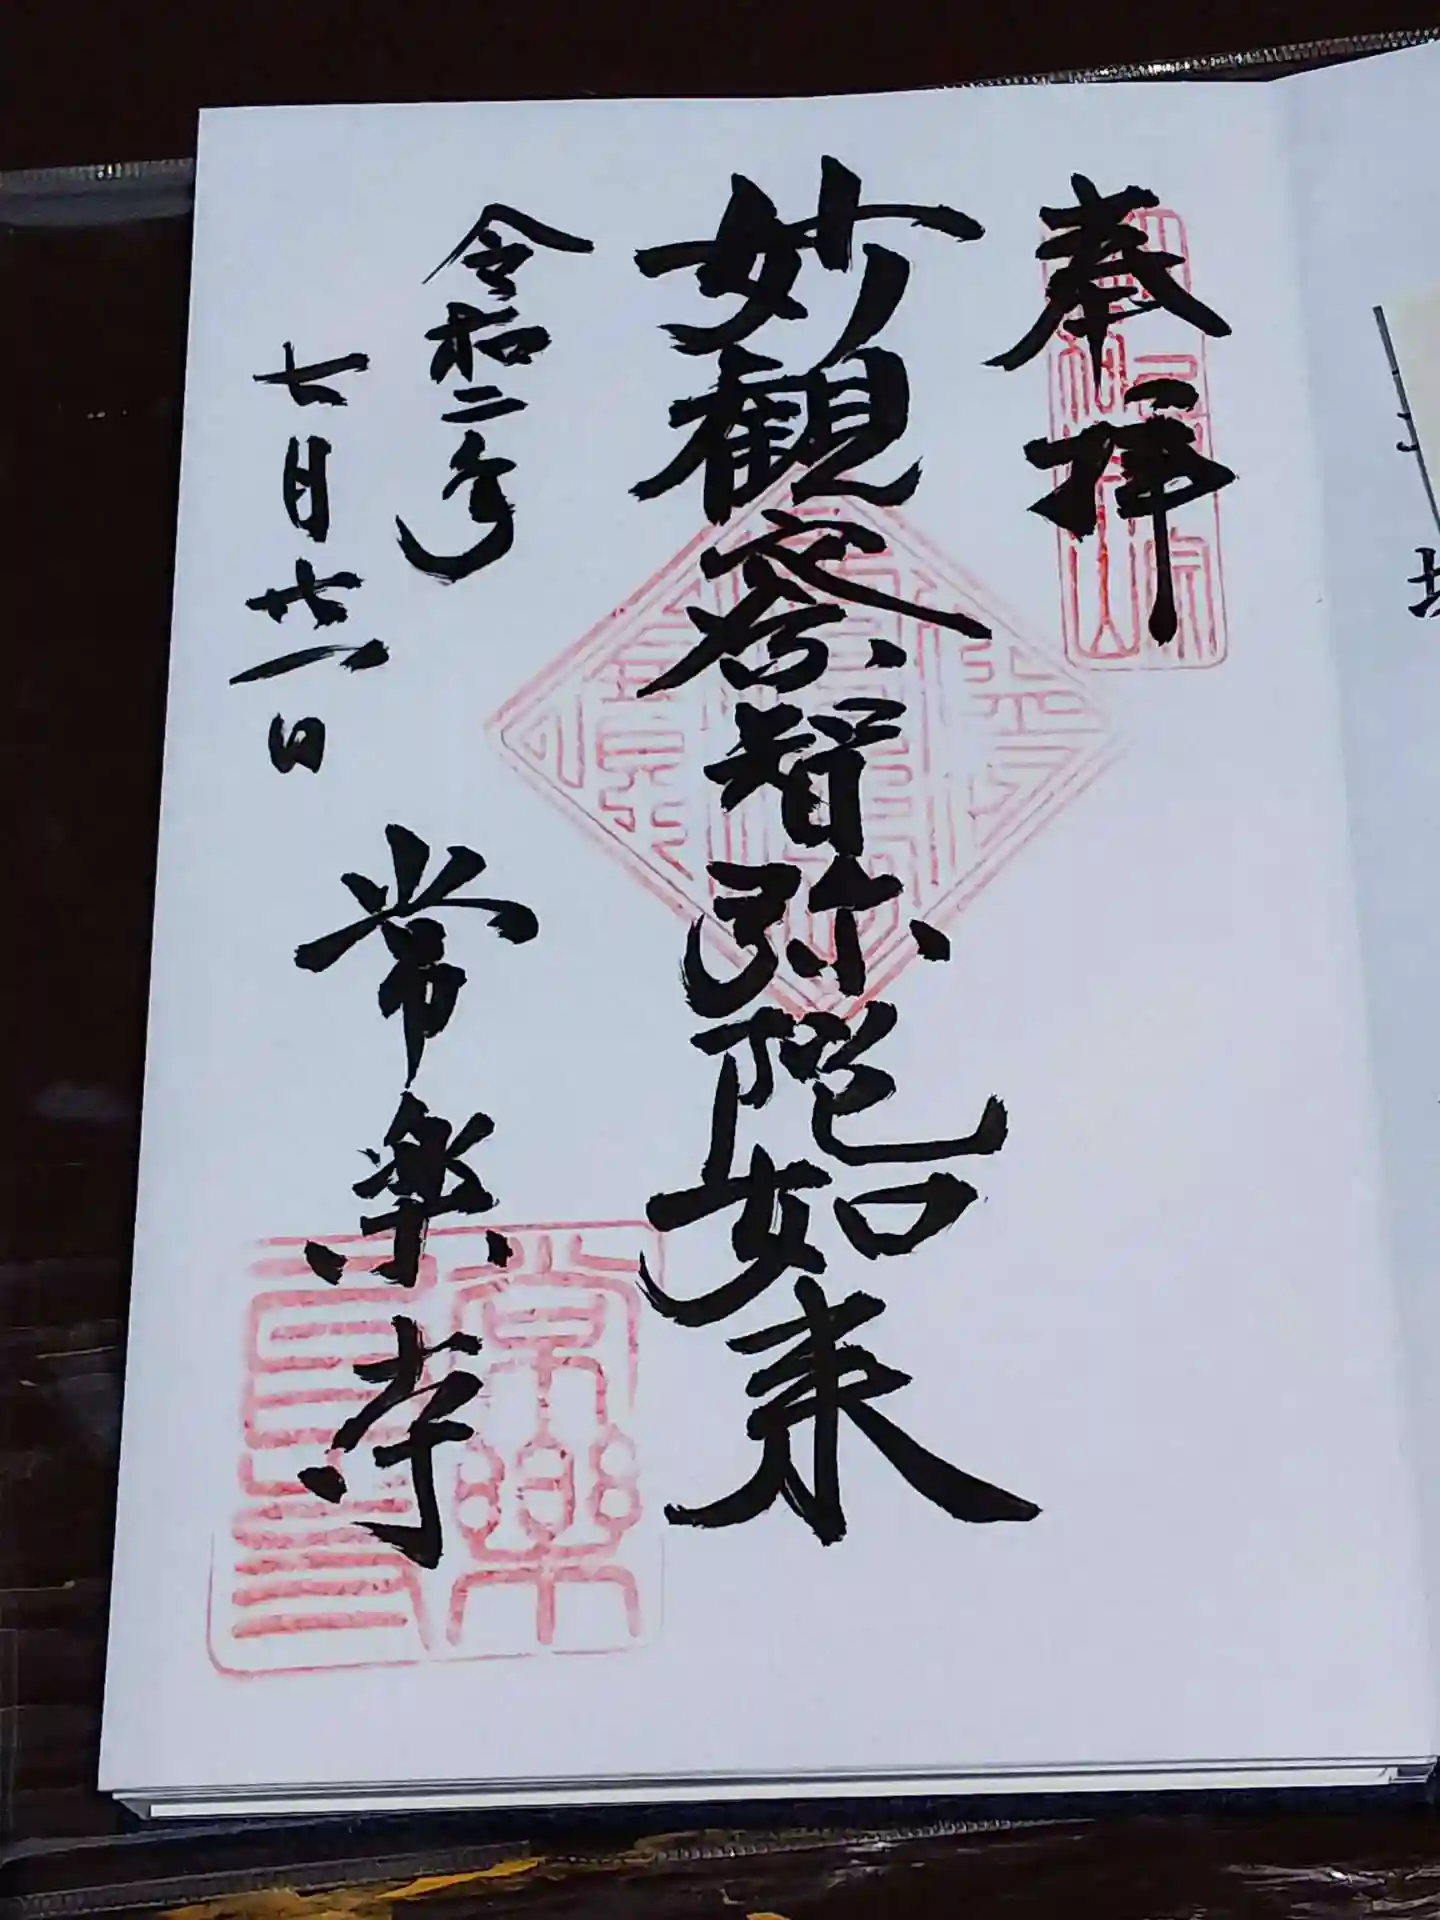 奉拝
妙観察智弥陀如来
令和二年
七月廿一日
常楽寺